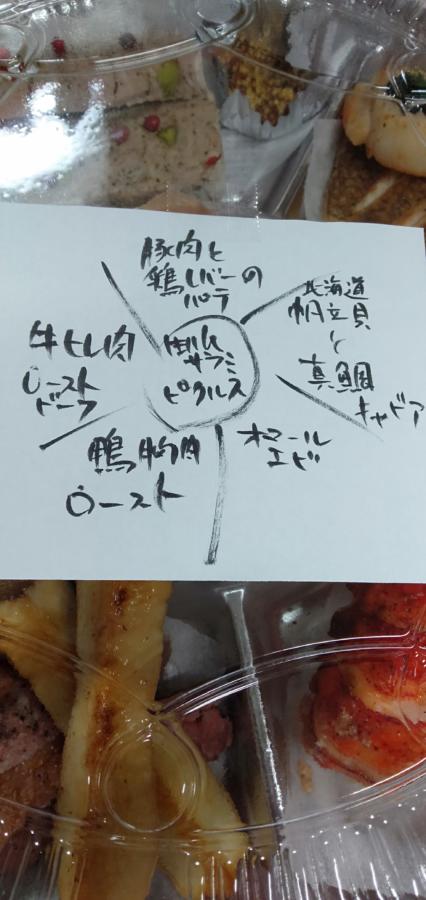 豚肉と
鶏レバーの
パテ
北海道
帆立貝
と
真鯛
キャビア
オマール
エビ
鴨胸肉
ロースト
牛ヒレ肉
ロースト
ビーフ
サラミ
ピクルス